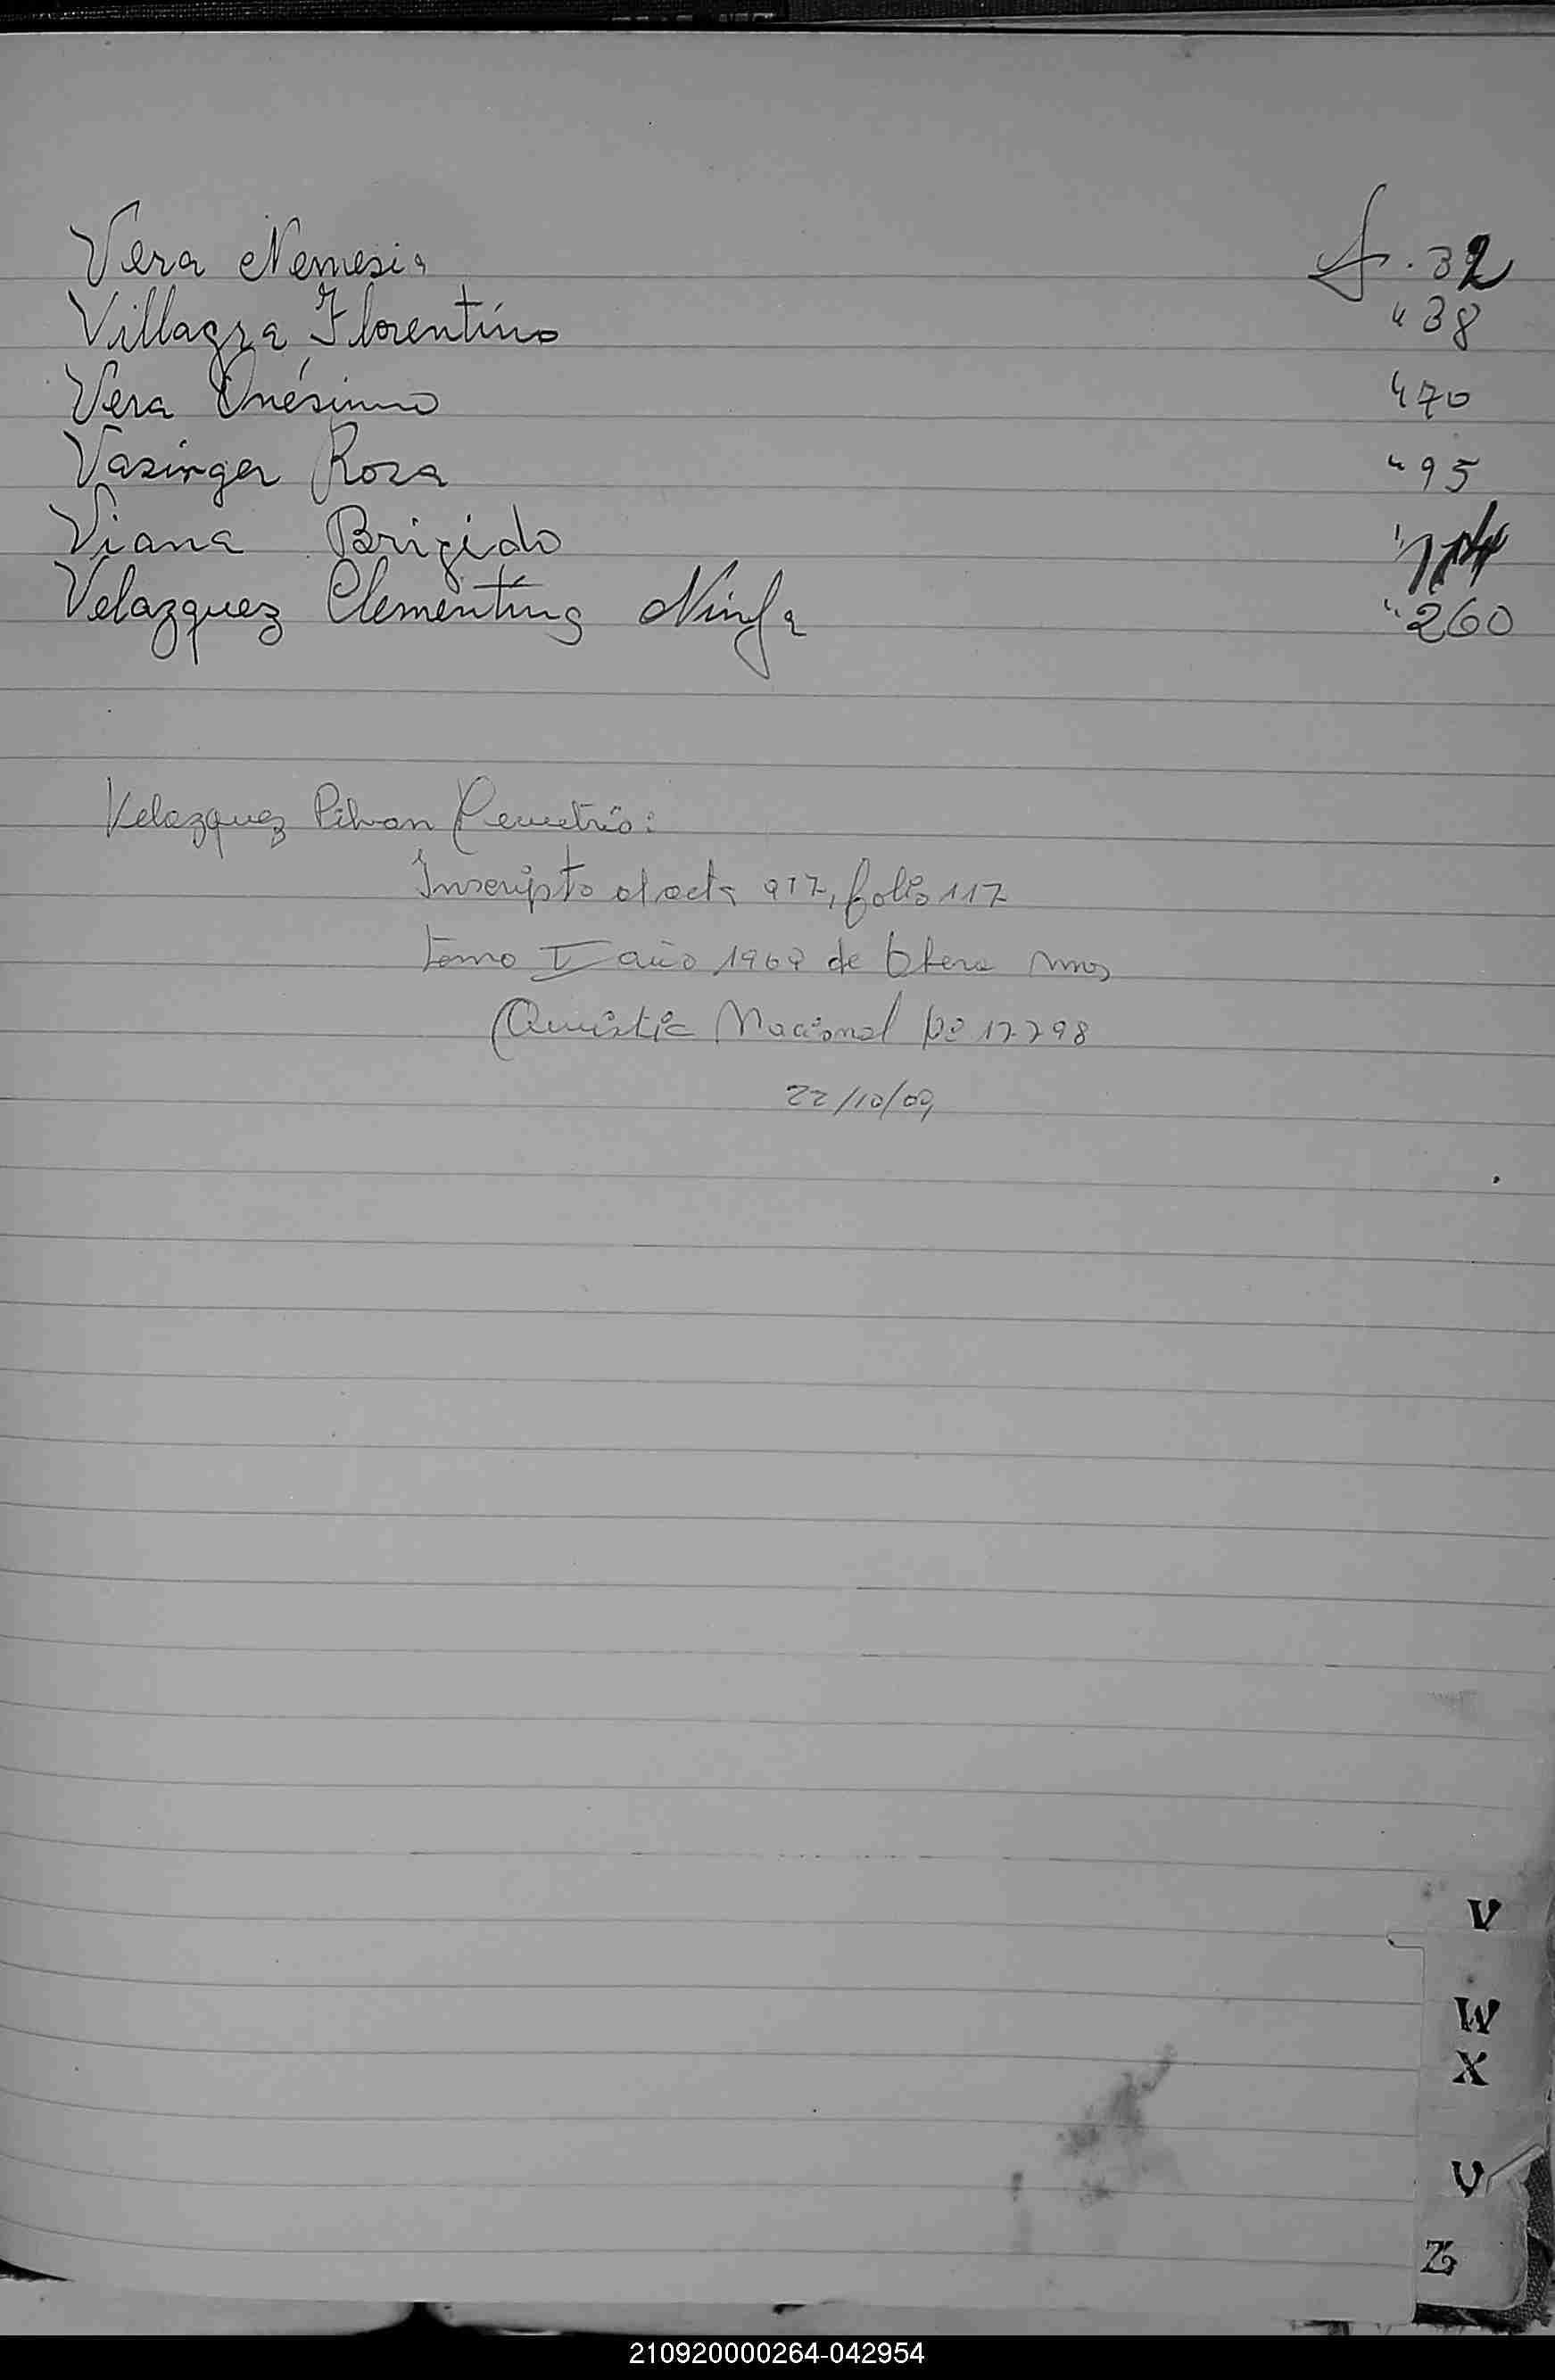 Vera Nemesia f. 32
Villagra Florentino " 38
Vera Onésimo " 70
Vasinger Rosa " 95
Viana Brigido "
Velazquez Clementina Ninfa " 260
Velazquez Demetrio:
Inscripto al acta 917, folio 117
tomo V año 1969 de Obera Mnes
(Amnistia Nacional No 17798
22/10/09
V
W
X
Z
210920000264-042954